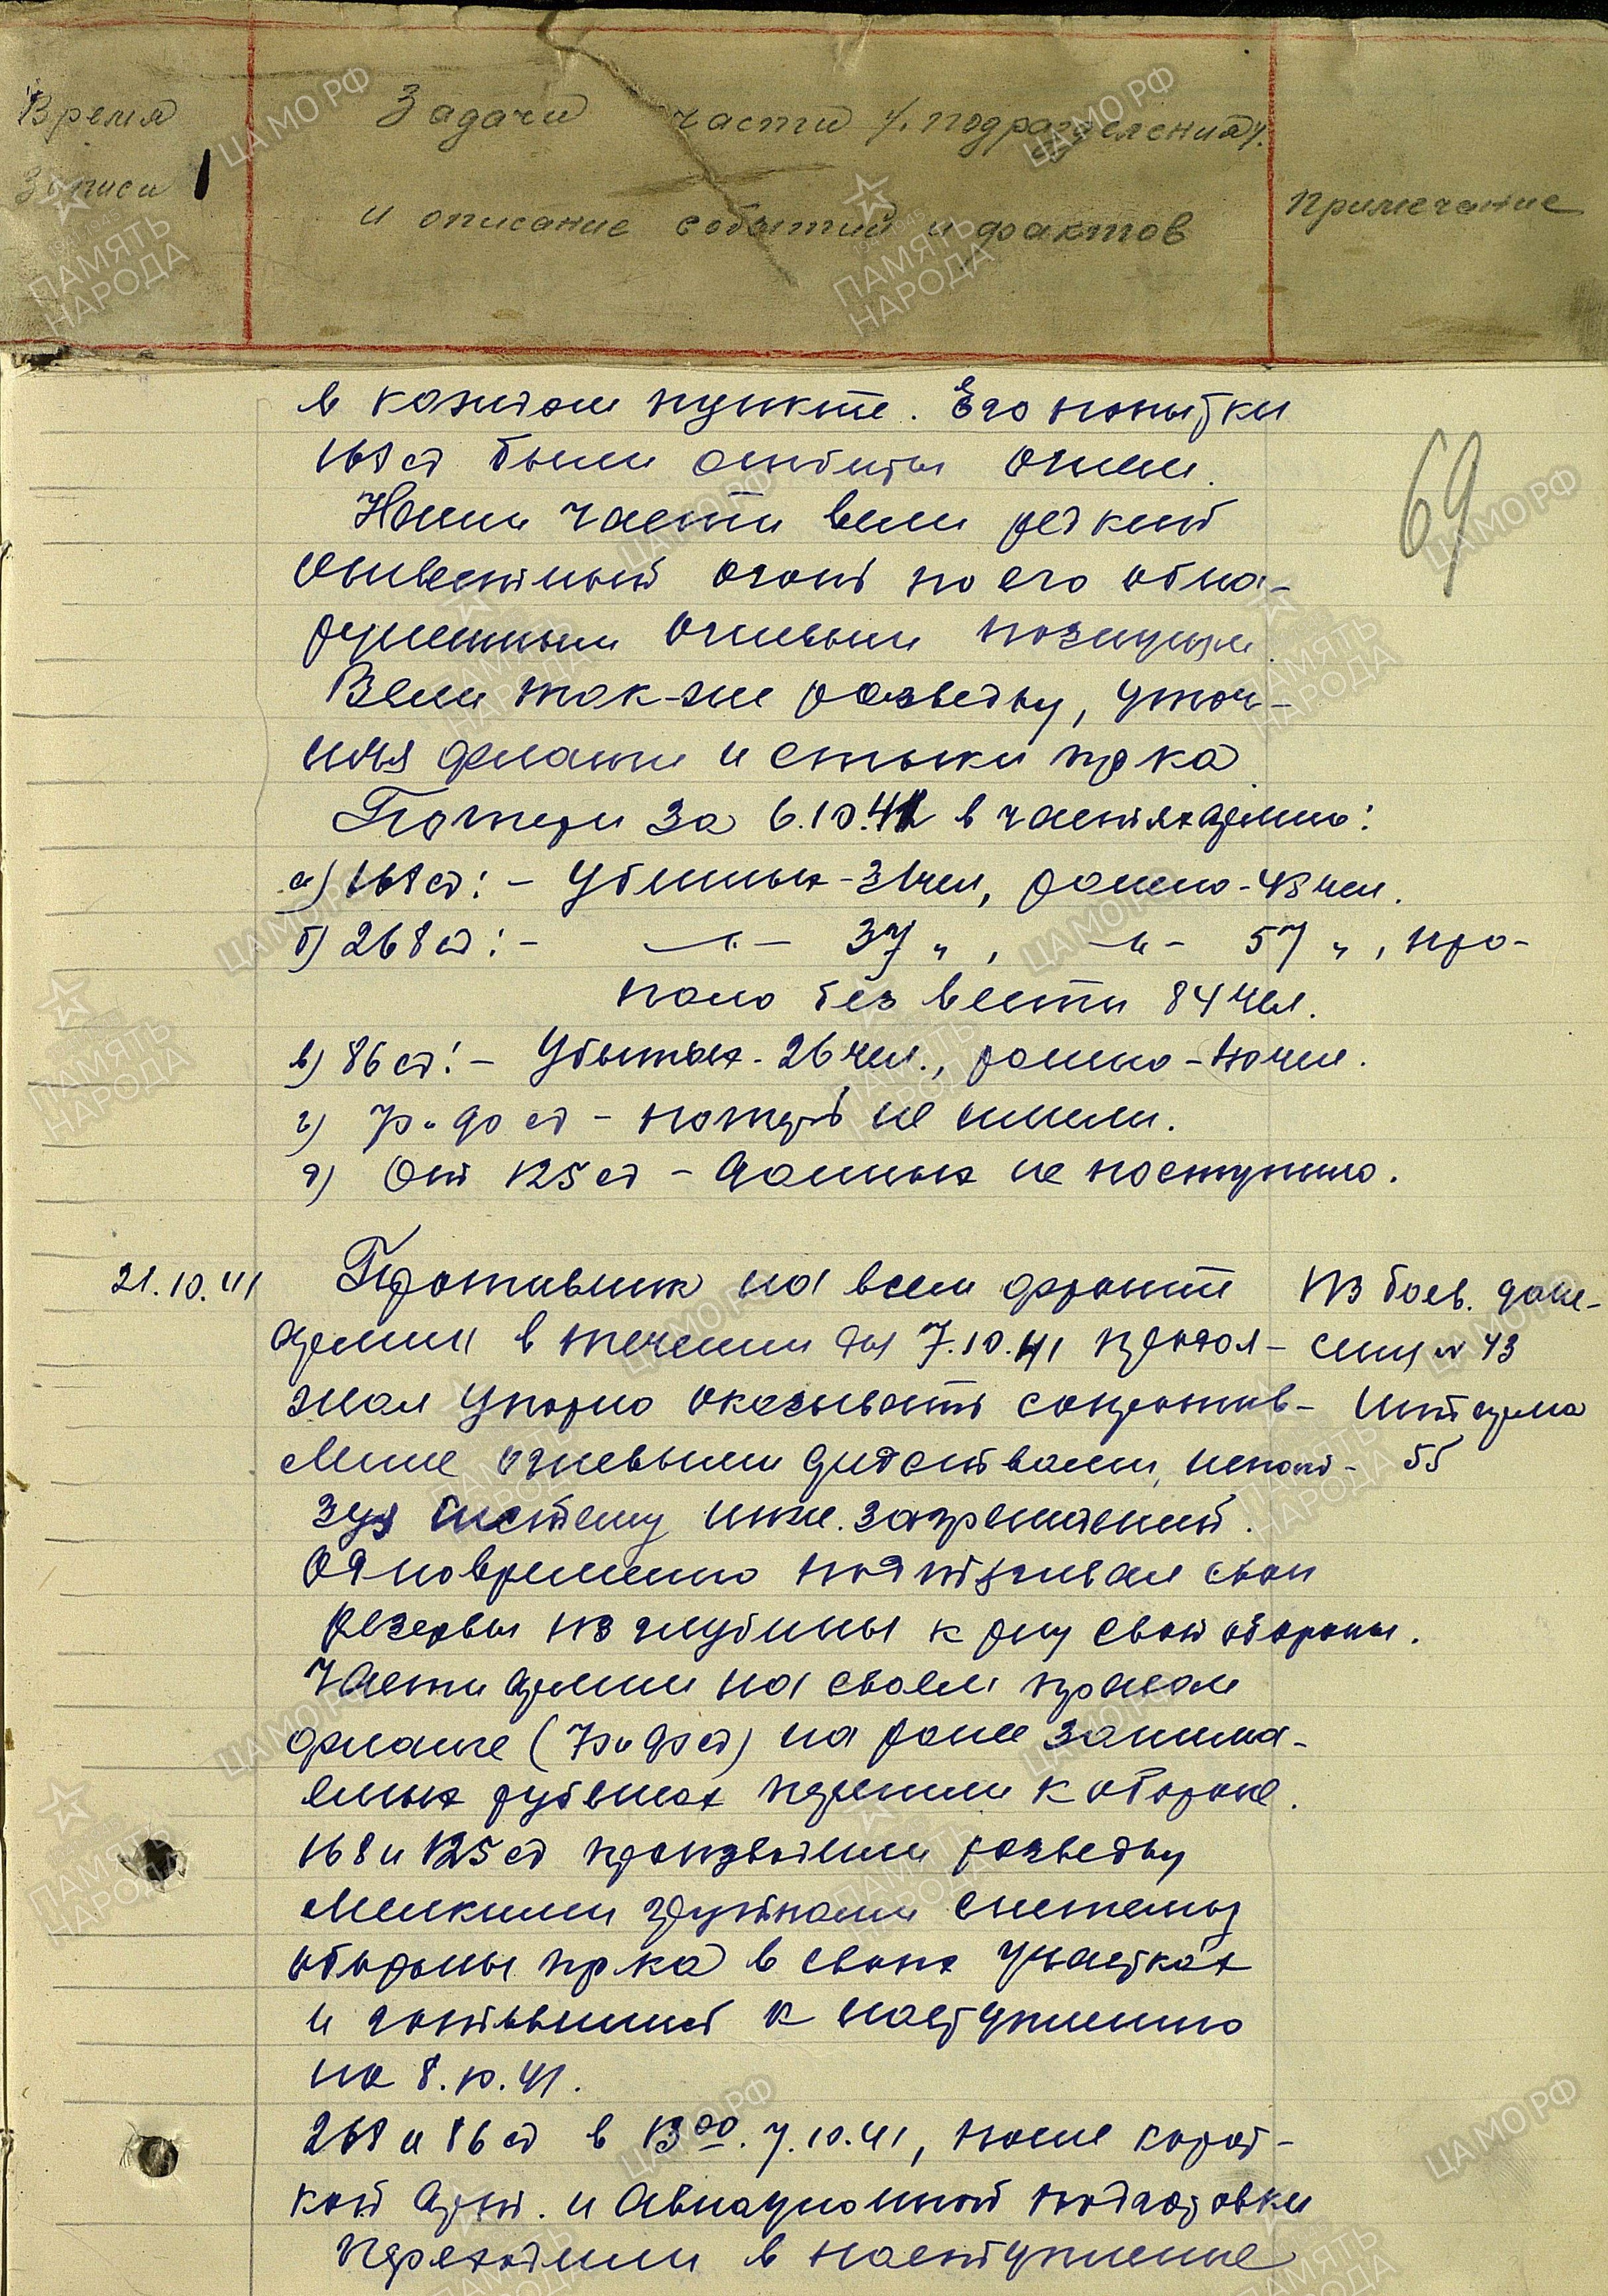 Время
Записи
Задачи части /подразделения/
и описание событий и фактов
Примечание
69
в каждом пункте. Его попытки
168 сд были отбиты огнем.
Наши части вели редкий
ответный огонь по его обна-
руженным огневым позициям.
Вели так-же разведку, уточ-
няя фланги и стыки пр-ка
Потери за 6.10.41 в частях армии:
а) 168 сд: – Убитых – 31 чел, ранено – 43 чел.
б) 268 сд: – –"– 37 " , –"– 57 " , про-
пало без вести 84 чел.
в) 86 сд: – Убитых – 26 чел., ранено – чел.
г) 70 и 90 сд – потерь не имели.
д) От 125 сд – данных не поступило.
21.10.41
Противник на всем фронте
армии в течении дня 7.10.41 продол-
жал упорно оказывать сопротив-
ление огневыми средствами, исполь-
зуя систему инж. заграждений.
Одновременно подтягивал свои
резервы из глубины к р-ну своей обороны.
Части армии на своем правом
фланге (70 и 90 сд) на ранее занима-
емых рубежах перешли к обороне.
168 и 125 сд производили разведку
мелкими группами системы
обороны пр-ка в своих участках
и готовились к наступлению
на 8.10.41.
268 и 86 сд в 13 00. 7.10.41, после корот-
кой арт. и авиационной подготовки
переходили в наступление
Из боев. доне-
сения № 43
Штарма
55